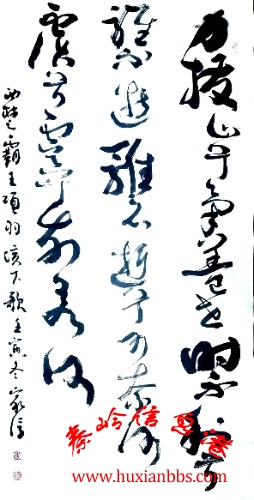 力拔山兮氣蓋世時不利兮
騅不逝騅不逝兮可奈何
虞兮虞兮奈若何
西楚霸王項羽垓下歌壬寅冬家信
秦岭信息港
www.huxianbbs.com